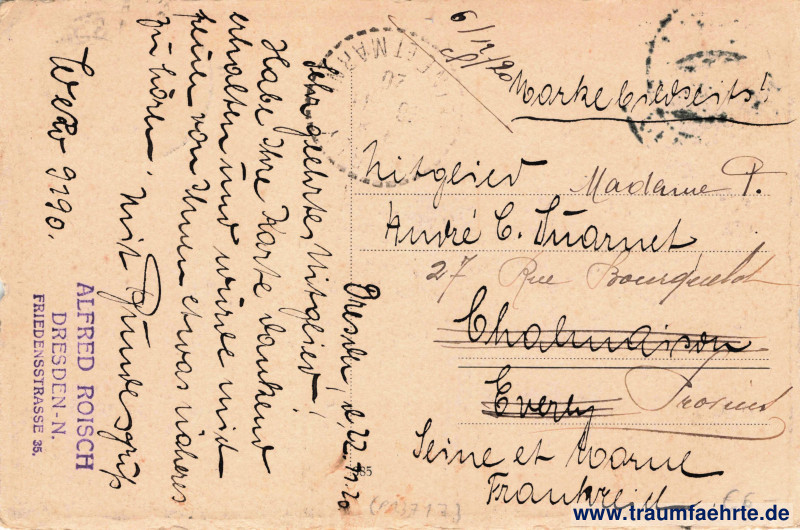 Dresden, d. 22.11.20
Sehr geehrtes Mitglied!
Habe Ihre Karte dankend
erhalten und würde mich
freuen von Ihnen etwas näheres
zu hören. Mit Bundesgruß
WeRo 9190.
ALFRED ROISCH
DRESDEN-N.
FRIEDENSSTRASSE 35.
6/12/20
Marke bildseits!
Mitglied Madame P.
André C. Suarnet
27 Rue Bourquelot
Chalmaison
Everly Provins
Seine et Marne
Frankreich
www.traumfaehrte.de